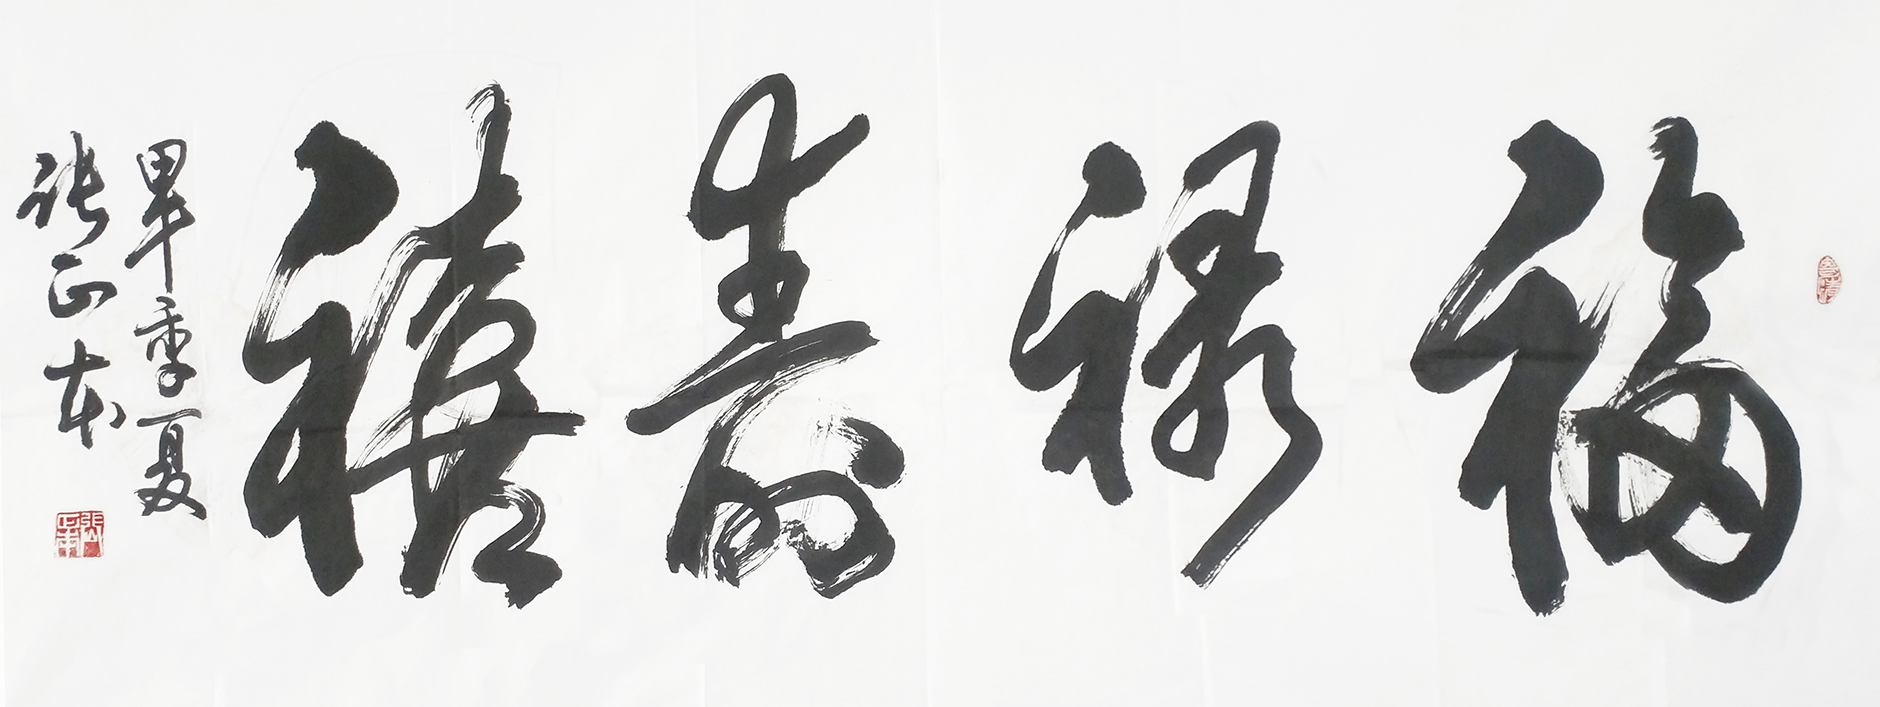 福禄壽禧
甲午季夏
张正本